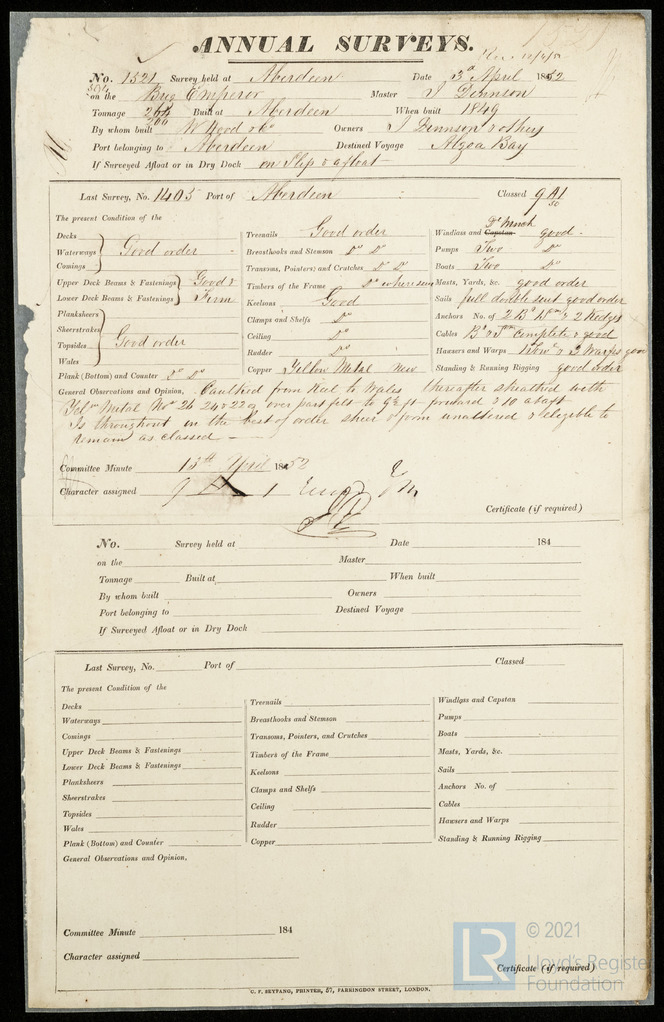 ANNUAL SURVEYS.
No. 1521 Survey held at Aberdeen Date 3d April 1852
on the Brig Emperor Master J Dennson
Tonnage 264 Built at Aberdeen When built 1849
By whom built W Hood & Co Owners J Dennson & others
Port belonging to Aberdeen Destined Voyage Algoa Bay
If Surveyed Afloat or in Dry Dock on Slip & afloat
Last Survey, No. 1405 Port of Aberdeen Classed 9A1
50
The present Condition of the
Decks
Waterways Good order
Comings
Upper Deck Beams & Fastenings Good &
Lower Deck Beams & Fastenings Firm
Planksheers
Sheerstrakes
Topsides Good order
Wales
Plank (Bottom) and Counter Do Do
Treenails Good order
Breasthooks and Stemson Do Do
Transoms, Pointers, and Crutches Do Do
Timbers of the Frame Do where seen
Keelsons Good
Clamps and Shelfs Do
Ceiling Do
Rudder Do
Copper Yellow Metal New
Windlass and Capstan good
Pumps Two Do
Boats Two Do
Masts, Yards, &c. good order
Sails full double suit good order
Anchors No. of 2 Bs & 2 Kedges
Cables complete & good
Hawsers and Warps & 3 Warps good
Standing & Running Rigging good order
General Observations and Opinion, Caulked from Keel to Wales thereafter sheathed with
Yelw Metal No 26 24 & 22 oz over part felt to 9½ ft forward & 10 abaft
Is throughout in the best of order sheer & form unaltered & eligible to
remain as classed —
Committee Minute 13th April 1852
Character assigned 9 A 1
Certificate (if required)
No. Survey held at Date 184
on the Master
Tonnage Built at When built
By whom built Owners
Port belonging to Destined Voyage
If Surveyed Afloat or in Dry Dock
Last Survey, No. Port of Classed
The present Condition of the
Decks
Waterways
Comings
Upper Deck Beams & Fastenings
Lower Deck Beams & Fastenings
Planksheers
Sheerstrakes
Topsides
Wales
Plank (Bottom) and Counter
Treenails
Breasthooks and Stemson
Transoms, Pointers, and Crutches
Timbers of the Frame
Keelsons
Clamps and Shelfs
Ceiling
Rudder
Copper
Windlass and Capstan
Pumps
Boats
Masts, Yards, &c.
Sails
Anchors No. of
Cables
Hawsers and Warps
Standing & Running Rigging
General Observations and Opinion,
Committee Minute 184
Character assigned
Certificate (if required)
C. F. SEYFANG, PRINTER, 57, FARRINGDON STREET, LONDON.
LR © 2021
Lloyd's Register
Foundation